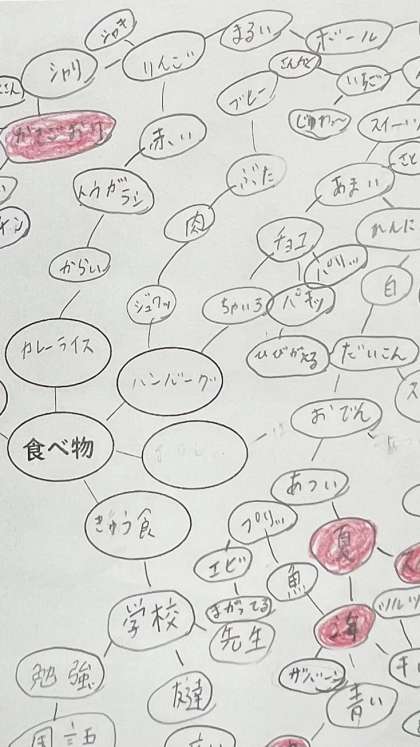 シャキ
まるい
ボール
シャリ
りんご
さんかく
いちご
ブヒー
じゅわ〜
スイーツ
かきごおり
赤い
トウガラシ
ぶた
あまい
肉
チョコ
れんに
からい
パリッ
白
ジュワッ
ちゃいろ
パキッ
カレーライス
ハンバーグ
ひびがえる
だいこん
おでん
食べ物
あつい
きゅう食
プリッ
夏
エビ
魚
まがってる
海
ツルツ
学校
先生
ザバーン
勉強
友達
青い
国語